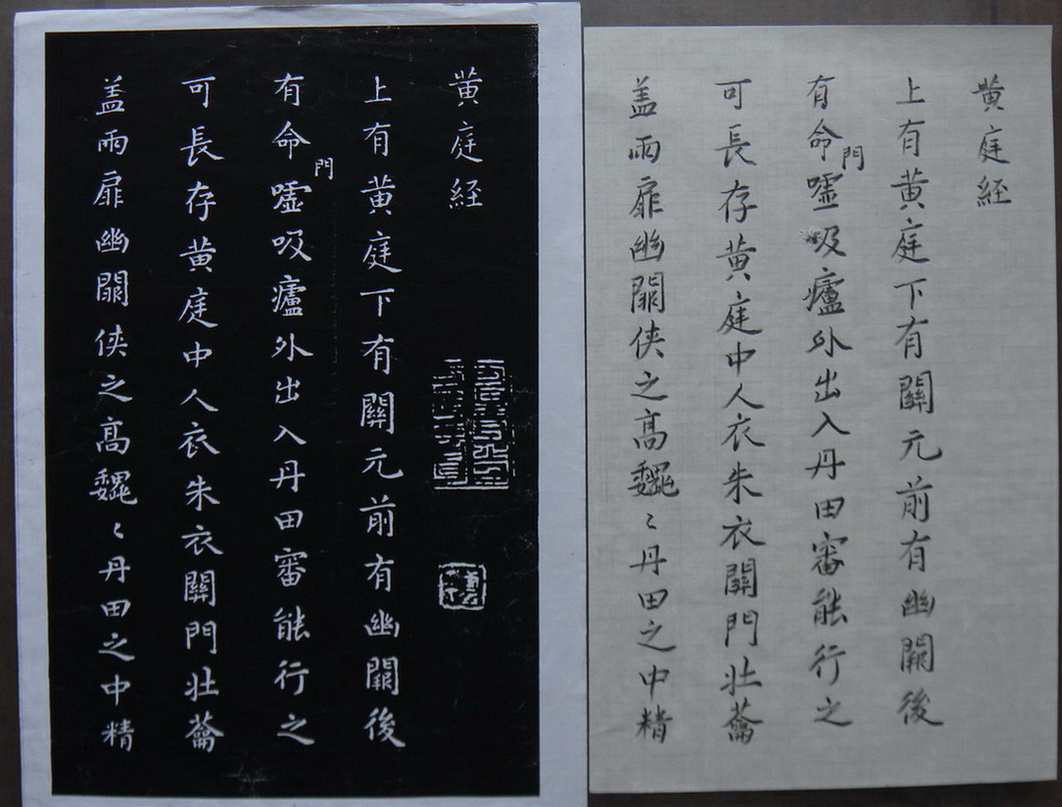 黄庭経
上有黄庭下有關元前有幽闕後
有命門嘘吸廬外出入丹田審能行之
可長存黄庭中人衣朱衣關門壮蘥
盖兩扉幽闕侠之高魏〻丹田之中精
黄庭経
上有黄庭下有關元前有幽闕後
有命門嘘吸廬外出入丹田審能行之
可長存黄庭中人衣朱衣關門壮蘥
盖兩扉幽闕侠之高魏〻丹田之中精